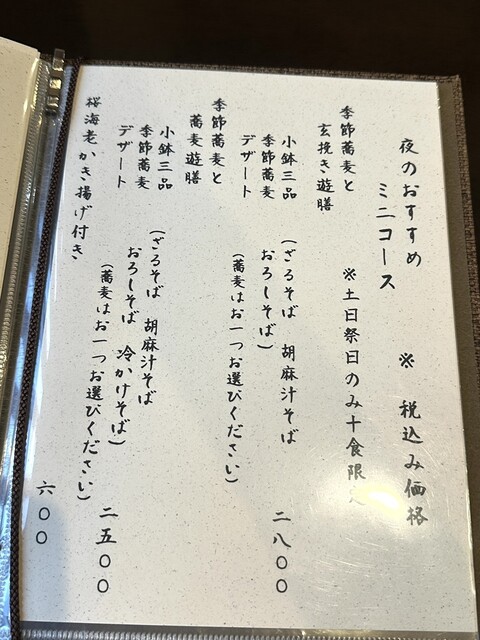 夜のおすすめ
ミニコース
※ 税込み価格
季節蕎麦と
玄挽き遊膳
※土日祭日のみ十食限定
小鉢三品
季節蕎麦
デザート
(ざるそば 胡麻汁そば
おろしそば)
(蕎麦はお一つお選びください)
二八〇〇
季節蕎麦と
蕎麦遊膳
小鉢三品
季節蕎麦
デザート
(ざるそば 胡麻汁そば
おろしそば 冷かけそば)
(蕎麦はお一つお選びください)
二五〇〇
桜海老かき揚げ付き
六〇〇